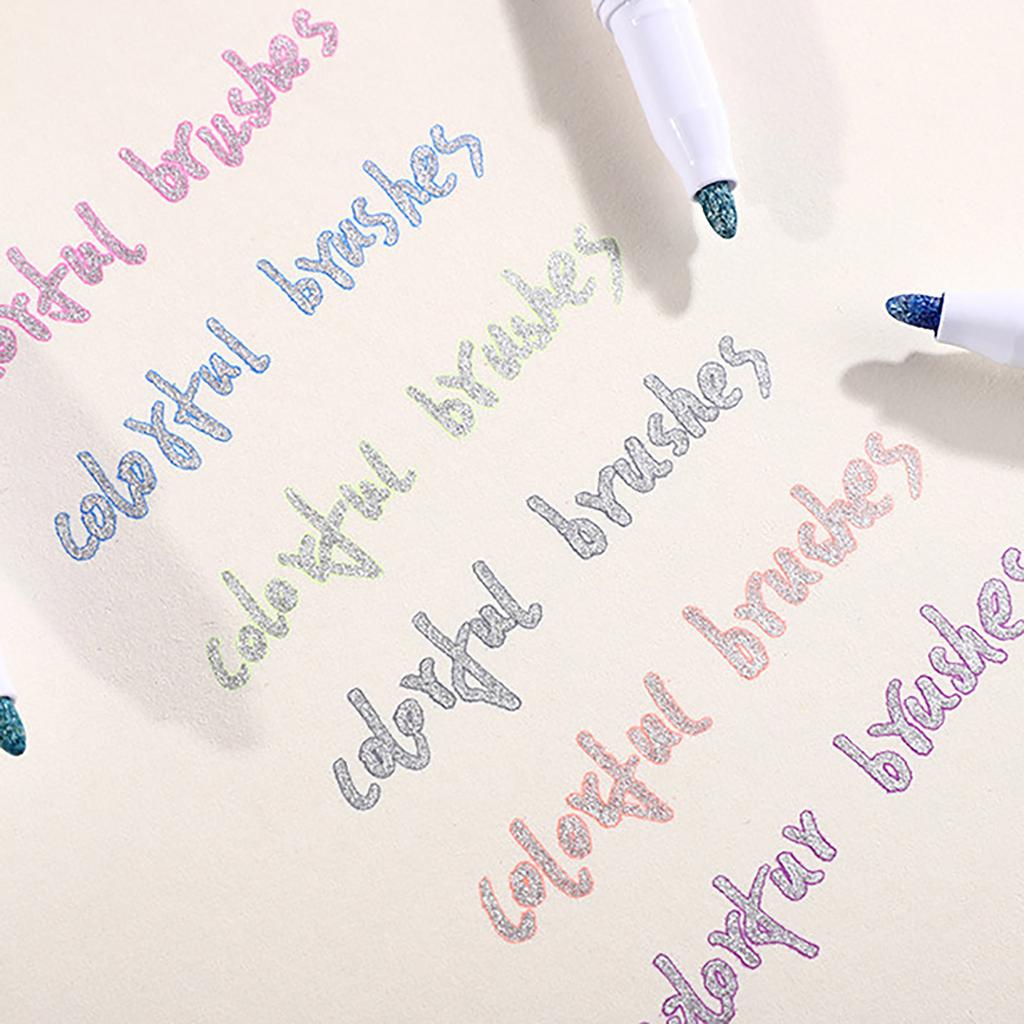 orful brushes
colorful brushes
colorful brushes
colorful brushes
colorful brushes
olorfur brushes